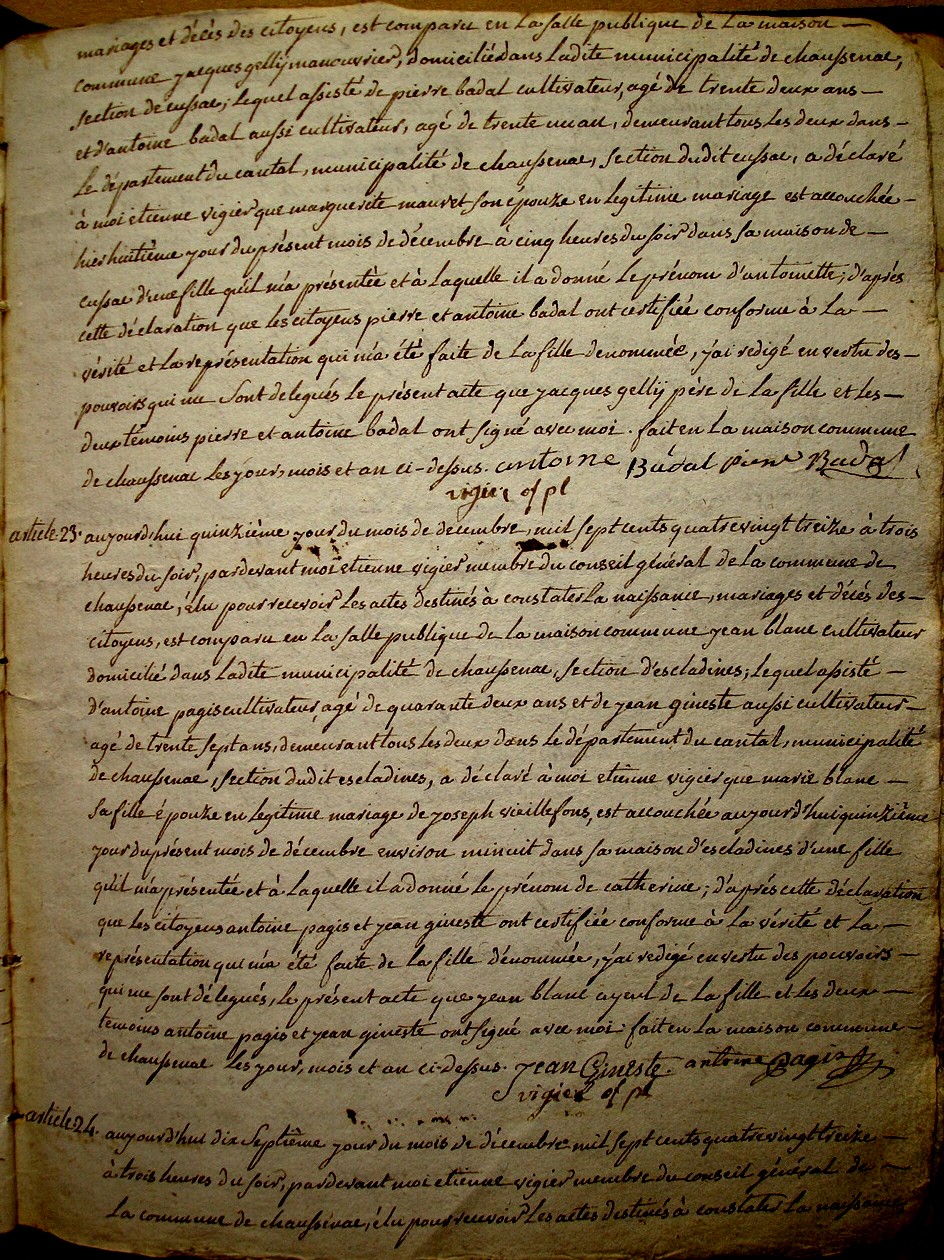 mariages et décés des citoyens, est comparu en la salle publique de la maison —
commune jacques gellij manouvrier, domicilié dans ladite municipalité de chaussenac,
section de cussac; lequel assisté de pierre badal cultivateur, agé de trente deux ans —
et d'antoine badal aussi cultivateur, agé de trente un an, demeurant tous les deux dans —
le département du cantal, municipalité de chaussenac, section dudit cussac, a déclaré
à moi etienne vigier que marguerite mauret son épouze en legitime mariage est accouchée —
hier huitième jour du présent mois de décembre à cinq heures du soir dans sa maison de —
cussac d'une fille qu'il m'a présentée et à laquelle il a donné le prénom d'antoinette; d'après
cette déclaration que les citoyens pierre et antoine badal ont certifiée conforme à la —
vérité et la représentation qui m'a été faite de la fille denommée, j'ai redigé en vertu des —
pouvoirs qui me sont delegués le présent acte que jacques gellij père de la fille et les —
deux témoins pierre et antoine badal ont signé avec moi. fait en la maison commune
de chaussenac les jour, mois et an ci-dessus. antoine Badal pierre Badal
vigier of pl
article 23. aujourd'hui quinzième jour du mois de decembre, mil sept cents quatre vingt treize à trois
heures du soir, pardevant moi etienne vigier membre du conseil général de la commune de
chaussenac, élu pour recevoir les actes destinés à constater la naissance, mariages et décés des —
citoyens, est comparu en la salle publique de la maison commune jean blanc cultivateur
domicilié dans ladite municipalité de chaussenac, section d'escladines; lequel assisté —
d'antoine pagis cultivateur, agé de quarante deux ans et de jean gineste aussi cultivateur —
agé de trente sept ans, demeurant tous les deux dans le département du cantal, municipalité
de chaussenac, section dudit escladines, a déclaré à moi etienne vigier que marie blanc —
sa fille épouze en legitime mariage de joseph vieillefons, est accouchée aujourd'hui quinzième
jour du présent mois de décembre environ minuit dans sa maison d'escladines d'une fille
qu'il m'a présentée et à laquelle il a donné le prénom de catherine; d'après cette déclaration
que les citoyens antoine pagis et jean gineste ont certifiée conforme à la vérité et la —
représentation qui m'a été faite de la fille dénommée, j'ai redigé en vertu des pouvoirs —
qui me sont délegués, le présent acte que jean blanc ayeul de la fille et les deux —
temoins antoine pagis et jean gineste ont signé avec moi. fait en la maison commune —
de chaussenac les jour, mois et an ci-dessus. jean Gineste. antoine pagis
vigier of pl
article 24. aujourd'hui dix septième jour du mois de décembre mil sept cents quatre vingt treize —
à trois heures du soir, pardevant moi etienne vigier membre du conseil général de —
la commune de chaussenac, élu pour recevoir les actes destinés à constater la naissance,